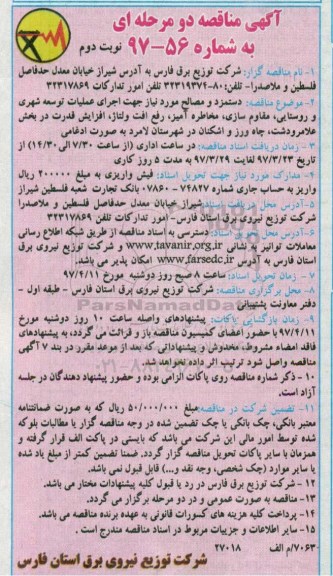 آگهی مناقصه دو مرحله ای
به شماره ۵۶-۹۷ نوبت دوم
۱- نام مناقصه گزار: شرکت توزیع برق فارس به آدرس شیراز خیابان معدل حدفاصل
فلسطین و ملاصدرا- تلفن:۸۰-۳۲۳۱۹۳۷۴ تلفن امور تدارکات ۳۲۳۱۷۸۶۹
۲- موضوع مناقصه: دستمزد و مصالح مورد نیاز جهت اجرای عملیات توسعه شهری
و روستایی، مقاوم سازی، مخاطره آمیز، رفع افت ولتاژ، افزایش قدرت در بخش
علامرودشت، چاه ورز و اشکنان در شهرستان لامرد به صورت ادغامی
۳- زمان دریافت اسناد مناقصه: در ساعت اداری (از ساعت ۷/۳۰ الی ۱۴/۳۰) از
تاریخ ۹۷/۳/۲۳ لغایت ۹۷/۳/۲۹ به مدت ۵ روز کاری
۴- مدارک مورد نیاز جهت تحویل اسناد: فیش واریزی به مبلغ ۲۰۰۰۰۰ ریال
واریز به حساب جاری شماره ۷۴۸۲۷-۰۷۸۶۰ بانک تجارت شعبه فلسطین شیراز
۵-آدرس محل دریافت اسناد: شیراز خیابان معدل حدفاصل فلسطین و ملاصدرا
شرکت توزیع نیروی برق استان فارس- امور تدارکات تلفن ۳۲۳۱۷۸۶۹
۶-آدرس محل توزیع اسناد: دسترسی به اسناد مناقصه از طریق شبکه اطلاع رسانی
معاملات توانیر به نشانی www.tavanir.org.ir و شرکت توزیع نیروی برق
استان فارس به آدرس www.farsedc.ir امکان پذیر می باشد.
۷- زمان تحویل اسناد: ساعت ۸ صبح روز دوشنبه مورخ ۹۷/۴/۱۱
۸- محل برگزاری مناقصه: شرکت توزیع نیروی برق استان فارس - طبقه اول -
دفتر معاونت پشتیبانی
۹- زمان بازگشایی پاکات: پیشنهادهای واصله ساعت ۱۰ روز دوشنبه مورخ
۹۷/۴/۱۱ با حضور اعضای کمیسیون مناقصه باز و قرائت می گردد، به پیشنهادهای
فاقد امضاء مشروط، مخدوش و پیشنهاداتی که بعد از موعد مقرر در بند ۷ آگهی
مناقصه واصل شود ترتیب اثر داده نخواهد شد.
۱۰- ذکر شماره مناقصه روی پاکات الزامی بوده و حضور پیشنهاد دهندگان در جلسه
آزاد است.
۱۱- تضمین شرکت در مناقصه: مبلغ ۵۰/۰۰۰/۰۰۰ ریال که به صورت ضمانتنامه
معتبر بانکی، چک بانکی یا چک تضمین شده در وجه مناقصه گزار یا مطالبات بلوکه
شده توسط امور مالی این شرکت می باشد که بایستی در پاکت الف قرار گرفته و
همزمان با سایر پاکات تحویل مناقصه گزار گردد. ضمنا تضمین کمتر از مبلغ یاد شده
یا سایر موارد (چک شخصی، وجه نقد و...) قابل قبول نمی باشد.
۱۲- شرکت توزیع برق فارس در رد یا قبول کلیه پیشنهادات مختار می باشد.
۱۳- مناقصه به صورت عمومی و در دو مرحله برگزار می گردد.
۱۴- پرداخت کلیه هزینه های کسورات قانونی به عهده برنده مناقصه می باشد.
۱۵- سایر اطلاعات و جزییات مربوط در اسناد مناقصه مندرج است .
۷۰۶۳/م الف ۲۷۰۱۸
شرکت توزیع نیروی برق استان فارس